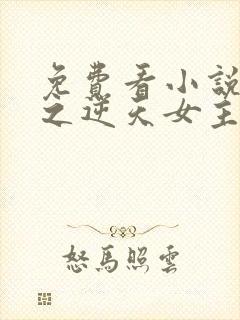 免費看小說
之逆天女主
怒馬照雲